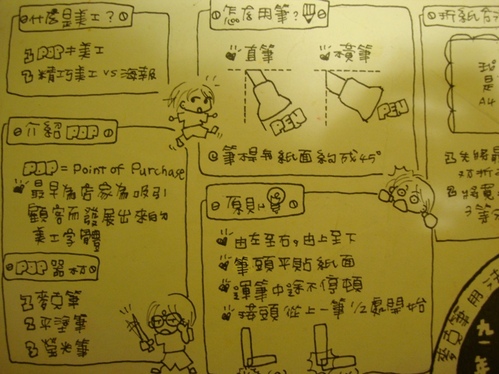 什麼是美工?
POP≠美工
精巧美工 VS 海報
介紹 POP
POP = Point of Purchase
最早為店家為吸引
顧客而發展出來的
美工字體
POP 器材
麥克筆
平塗筆
螢光筆
怎麼用筆?
直筆
橫筆
PEN
PEN
筆桿與紙面約成45°
原則
由左至右,由上至下
筆頭平貼紙面
運筆中途不停頓
接頭從上一筆1/2處開始